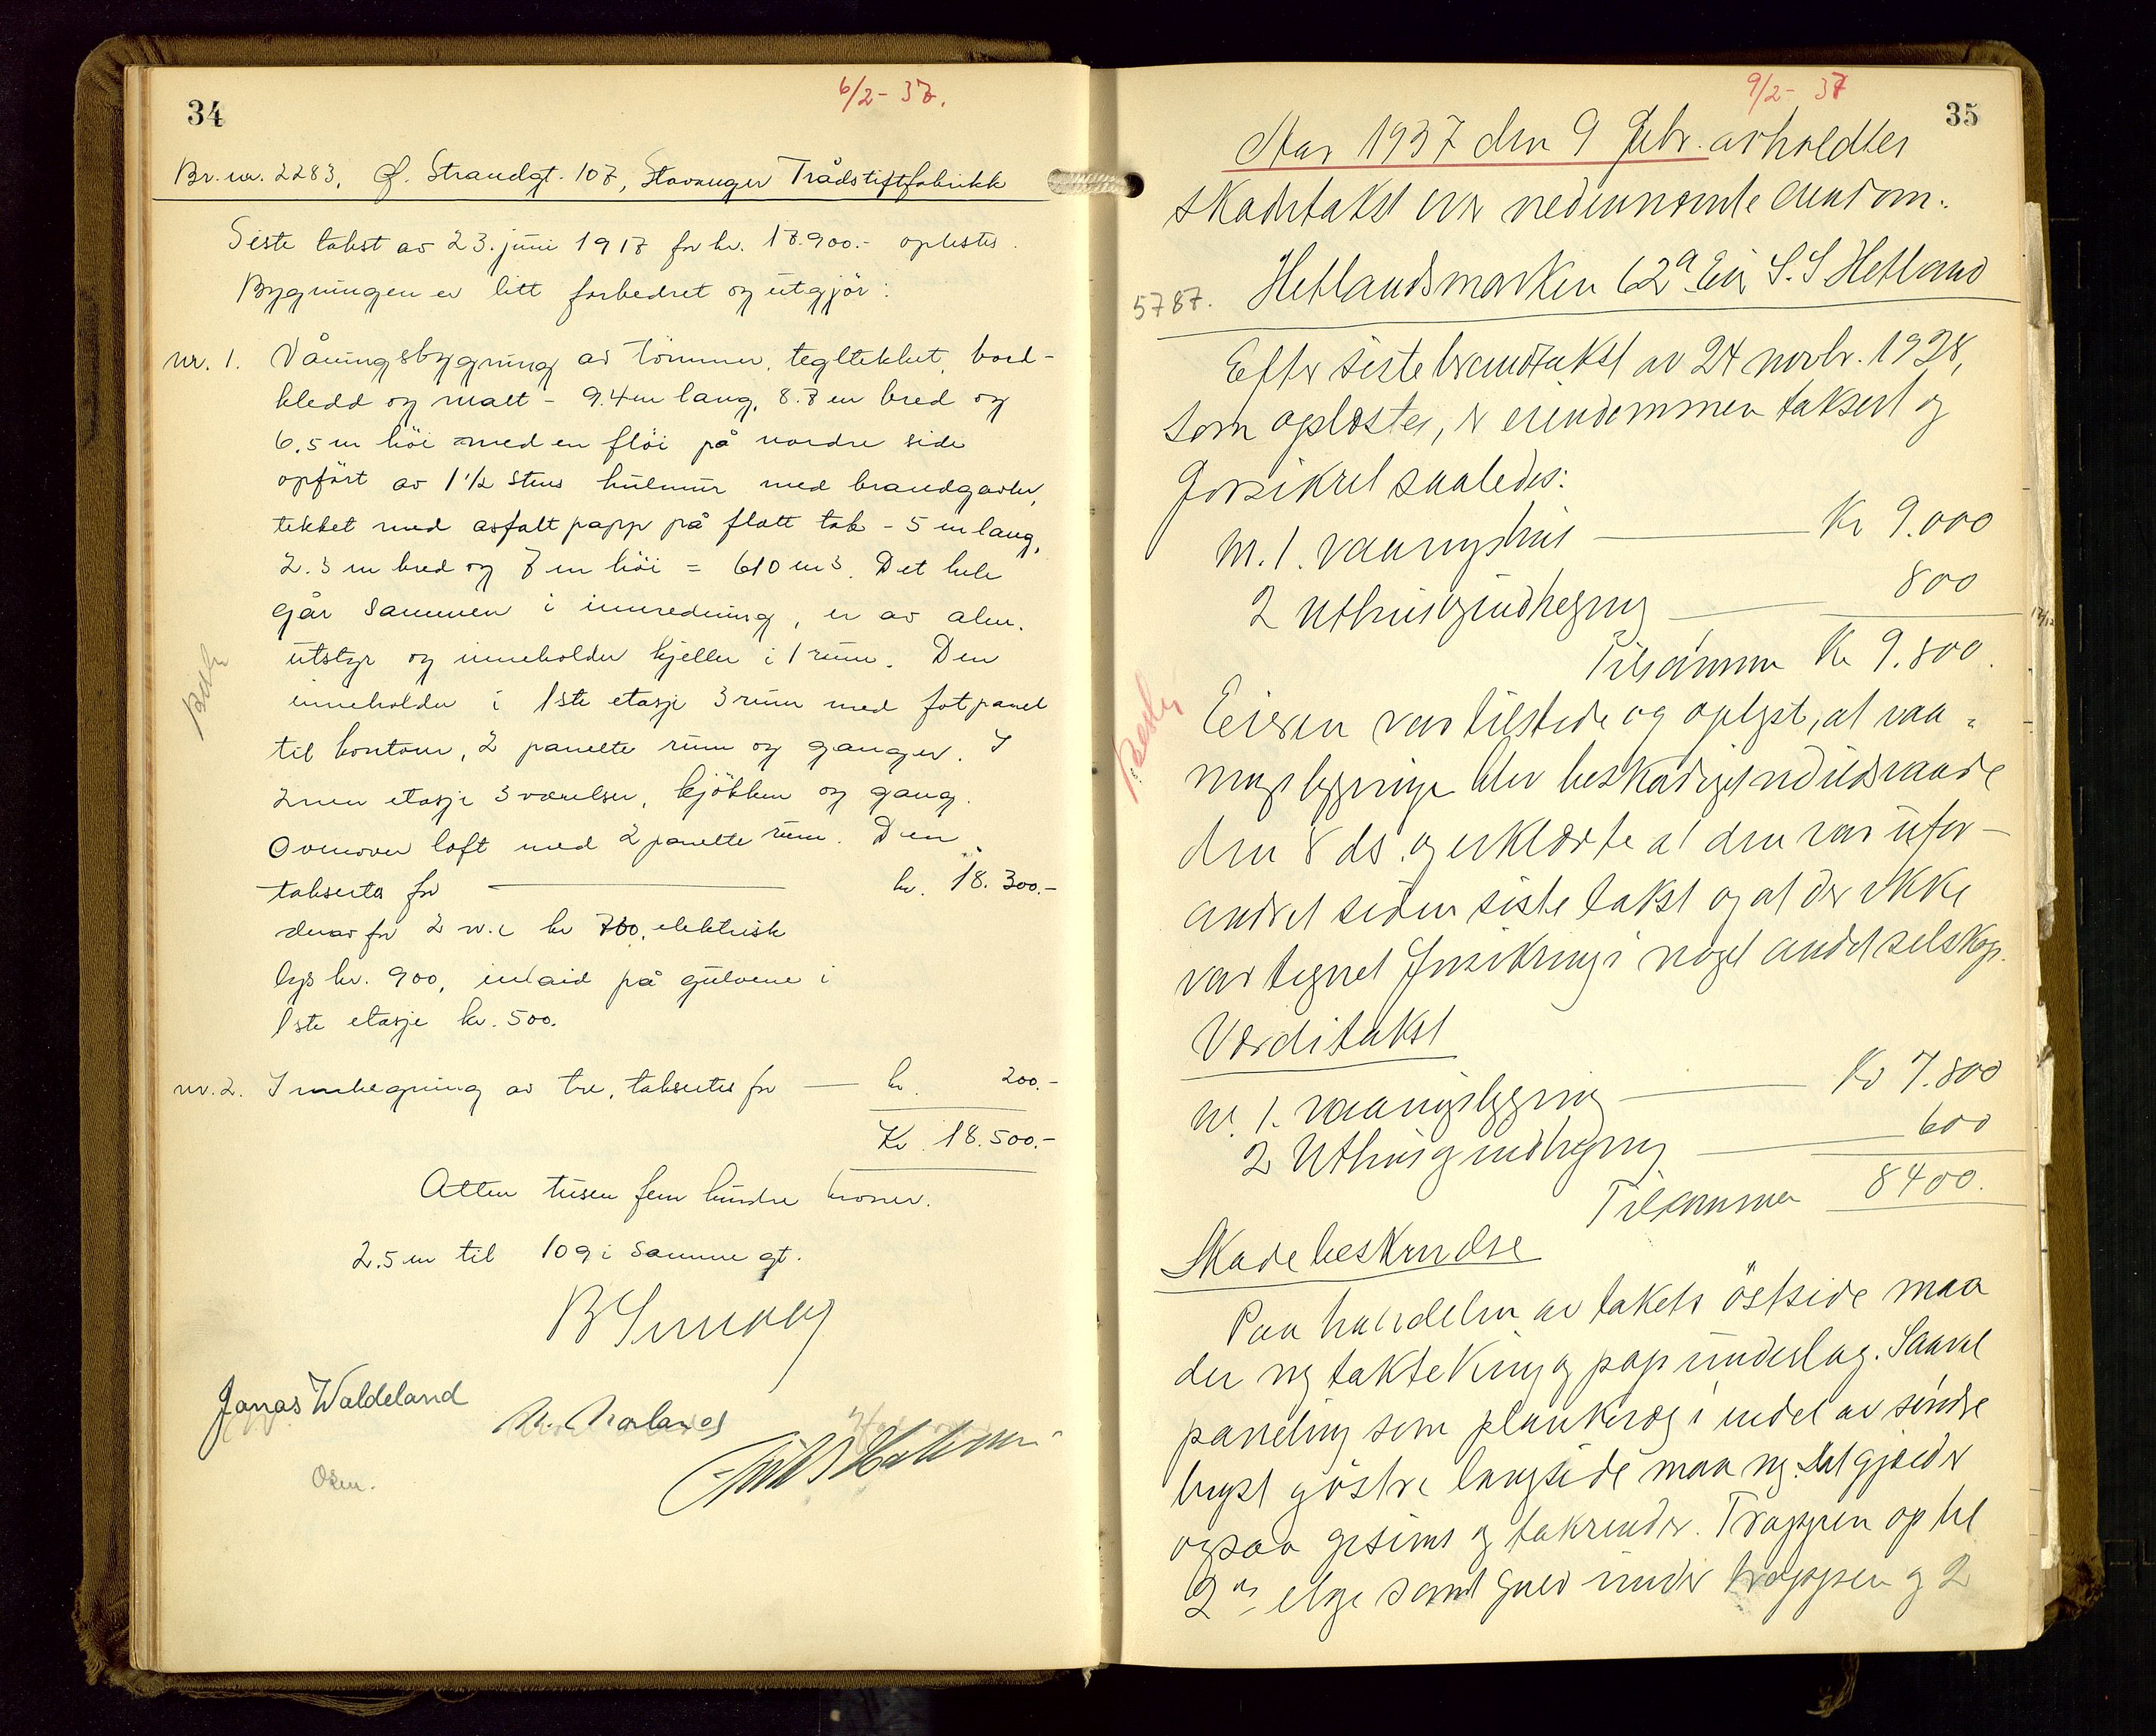 34
6/2- 37.
Br. nr. 2283, Ø. Strandgt. 107, Stavanger Trådstiftfabrikk
Siste takst av 23. juni 1917 for kr. 17.900.- oplestes.
Bygningen er litt forbedret og utgjør:
nr. 1. Våningsbygning av tømmer, tegltekket, bord-
kledd og malt - 9.4 m lang, 8.7 m bred og
6.5 m höi med en flöi på nordre side
opfört av 1 1/2 stens hulmur med brandgavler,
tekket med asfaltpapp på flatt tak - 5 m lang,
2.3 m bred og 7 m höi = 610 m3. Det hele
går sammen i innredning, er av alm.
utstyr og inneholder kjeller i 1 rum. Den
inneholder i 1ste etasje 3 rum med fotpanel
til kontor, 2 panelte rum og ganger. I
2nen etasje 3 værelser, kjökken og gang.
Ovenover loft med 2 panelte rum. Den
takseres for kr. 18.300.-
derav for 2 w.c kr 700, elektrisk
lys kr. 900, inlaid på gulvene i
1ste etasje kr. 500.
nr. 2. Innhegning av tre, takseres for kr. 200.-
Kr. 18.500.-
Atten tusen fem hundre kroner.
2.5 m til 109 i samme gt.
Jonas Waldeland
Osm.
9/2- 37
35
Aar 1937 den 9 Febr. avholdtes
skadetakst over nedennevnte eiendom.
5787. Hetlandsmarken 62a Eier S. S Hetland
Efter siste brandtakst av 24 novbr. 1928,
som oplæstes, er eiendommen taksert og
forsikret saaledes:
nr. 1. vaaningshus Kr 9.000
2 Uthus og indhegning 800
Tilsammen Kr 9.800.
Eieren var tilstede og oplyst, at vaa-
ningsbygningen blev beskadiget ved ildsvaade
den 8 ds. og erklærte at den var ufor-
andret siden siste takst og at der ikke
var tegnet forsikring i noget andet selskap.
Værditakst
nr. 1. vaaningsbygning Kr 7.800
2 Uthus og indhegning 600
Tilsammen 8400.
Skadebeskrivelse
Paa halvdelen av takets östside maa
der ny taktekking og pap underlag. Saavel
paneling som plankevæg i endel av söndre
bryst og östre langside maa ny. Det gjælder
ogsaa gesims og takrender. Trappen op til
2en etge samt gulv under trappen og 2